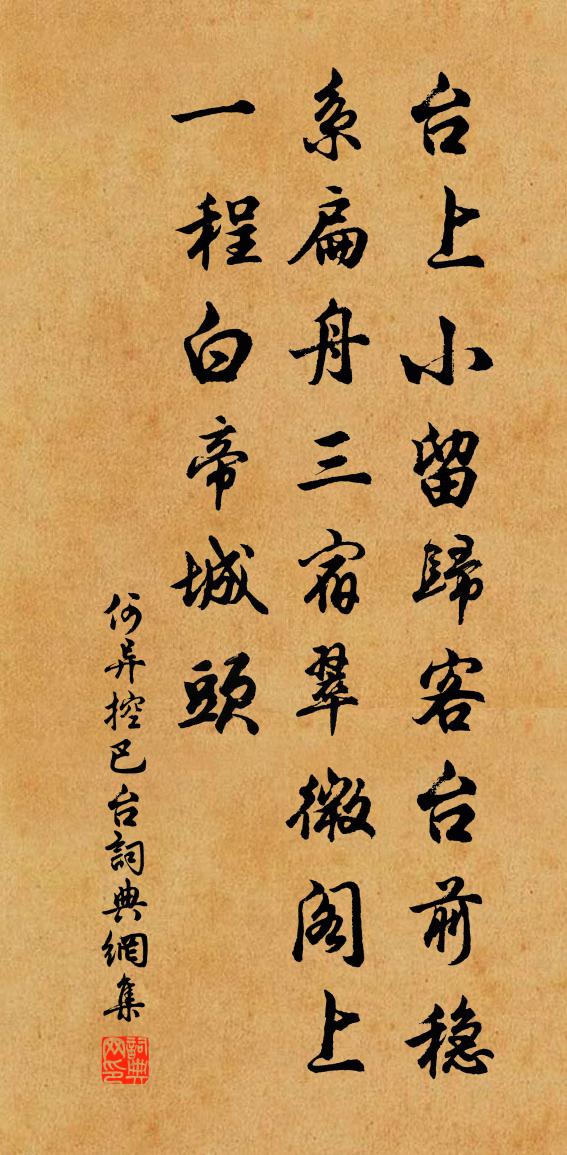 台上小留歸客台前穩
系扁舟三宿翠微阁上
一程白帝城頭
何异控巴台詞典網集
詞典网印